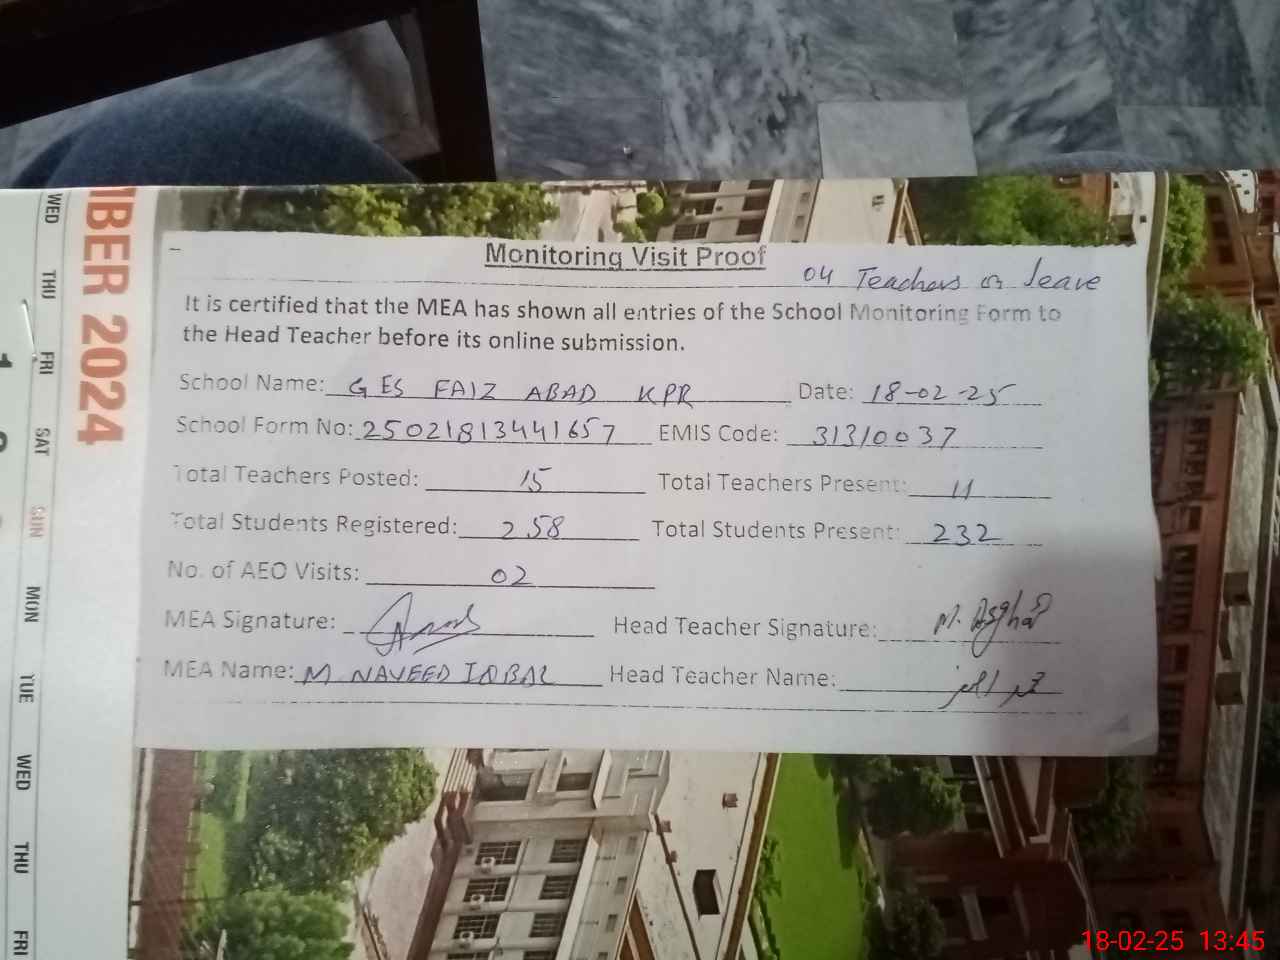 Monitoring Visit Proof
04 Teachers on leave
It is certified that the MEA has shown all entries of the School Monitoring Form to
the Head Teacher before its online submission.
School Name: GES FAIZ ABAD KPR Date: 18-02-25
School Form No: 25021813441657 EMIS Code: 31310037
Total Teachers Posted: 15 Total Teachers Present: 11
Total Students Registered: 258 Total Students Present: 232
No. of AEO Visits: 02
MEA Signature: Head Teacher Signature: M. Asghar
MEA Name: M NAVEED IQBAL Head Teacher Name:
MBER 2024
WED THU FRI SAT SUN MON TUE WED THU FRI
1
18-02-25 13:45